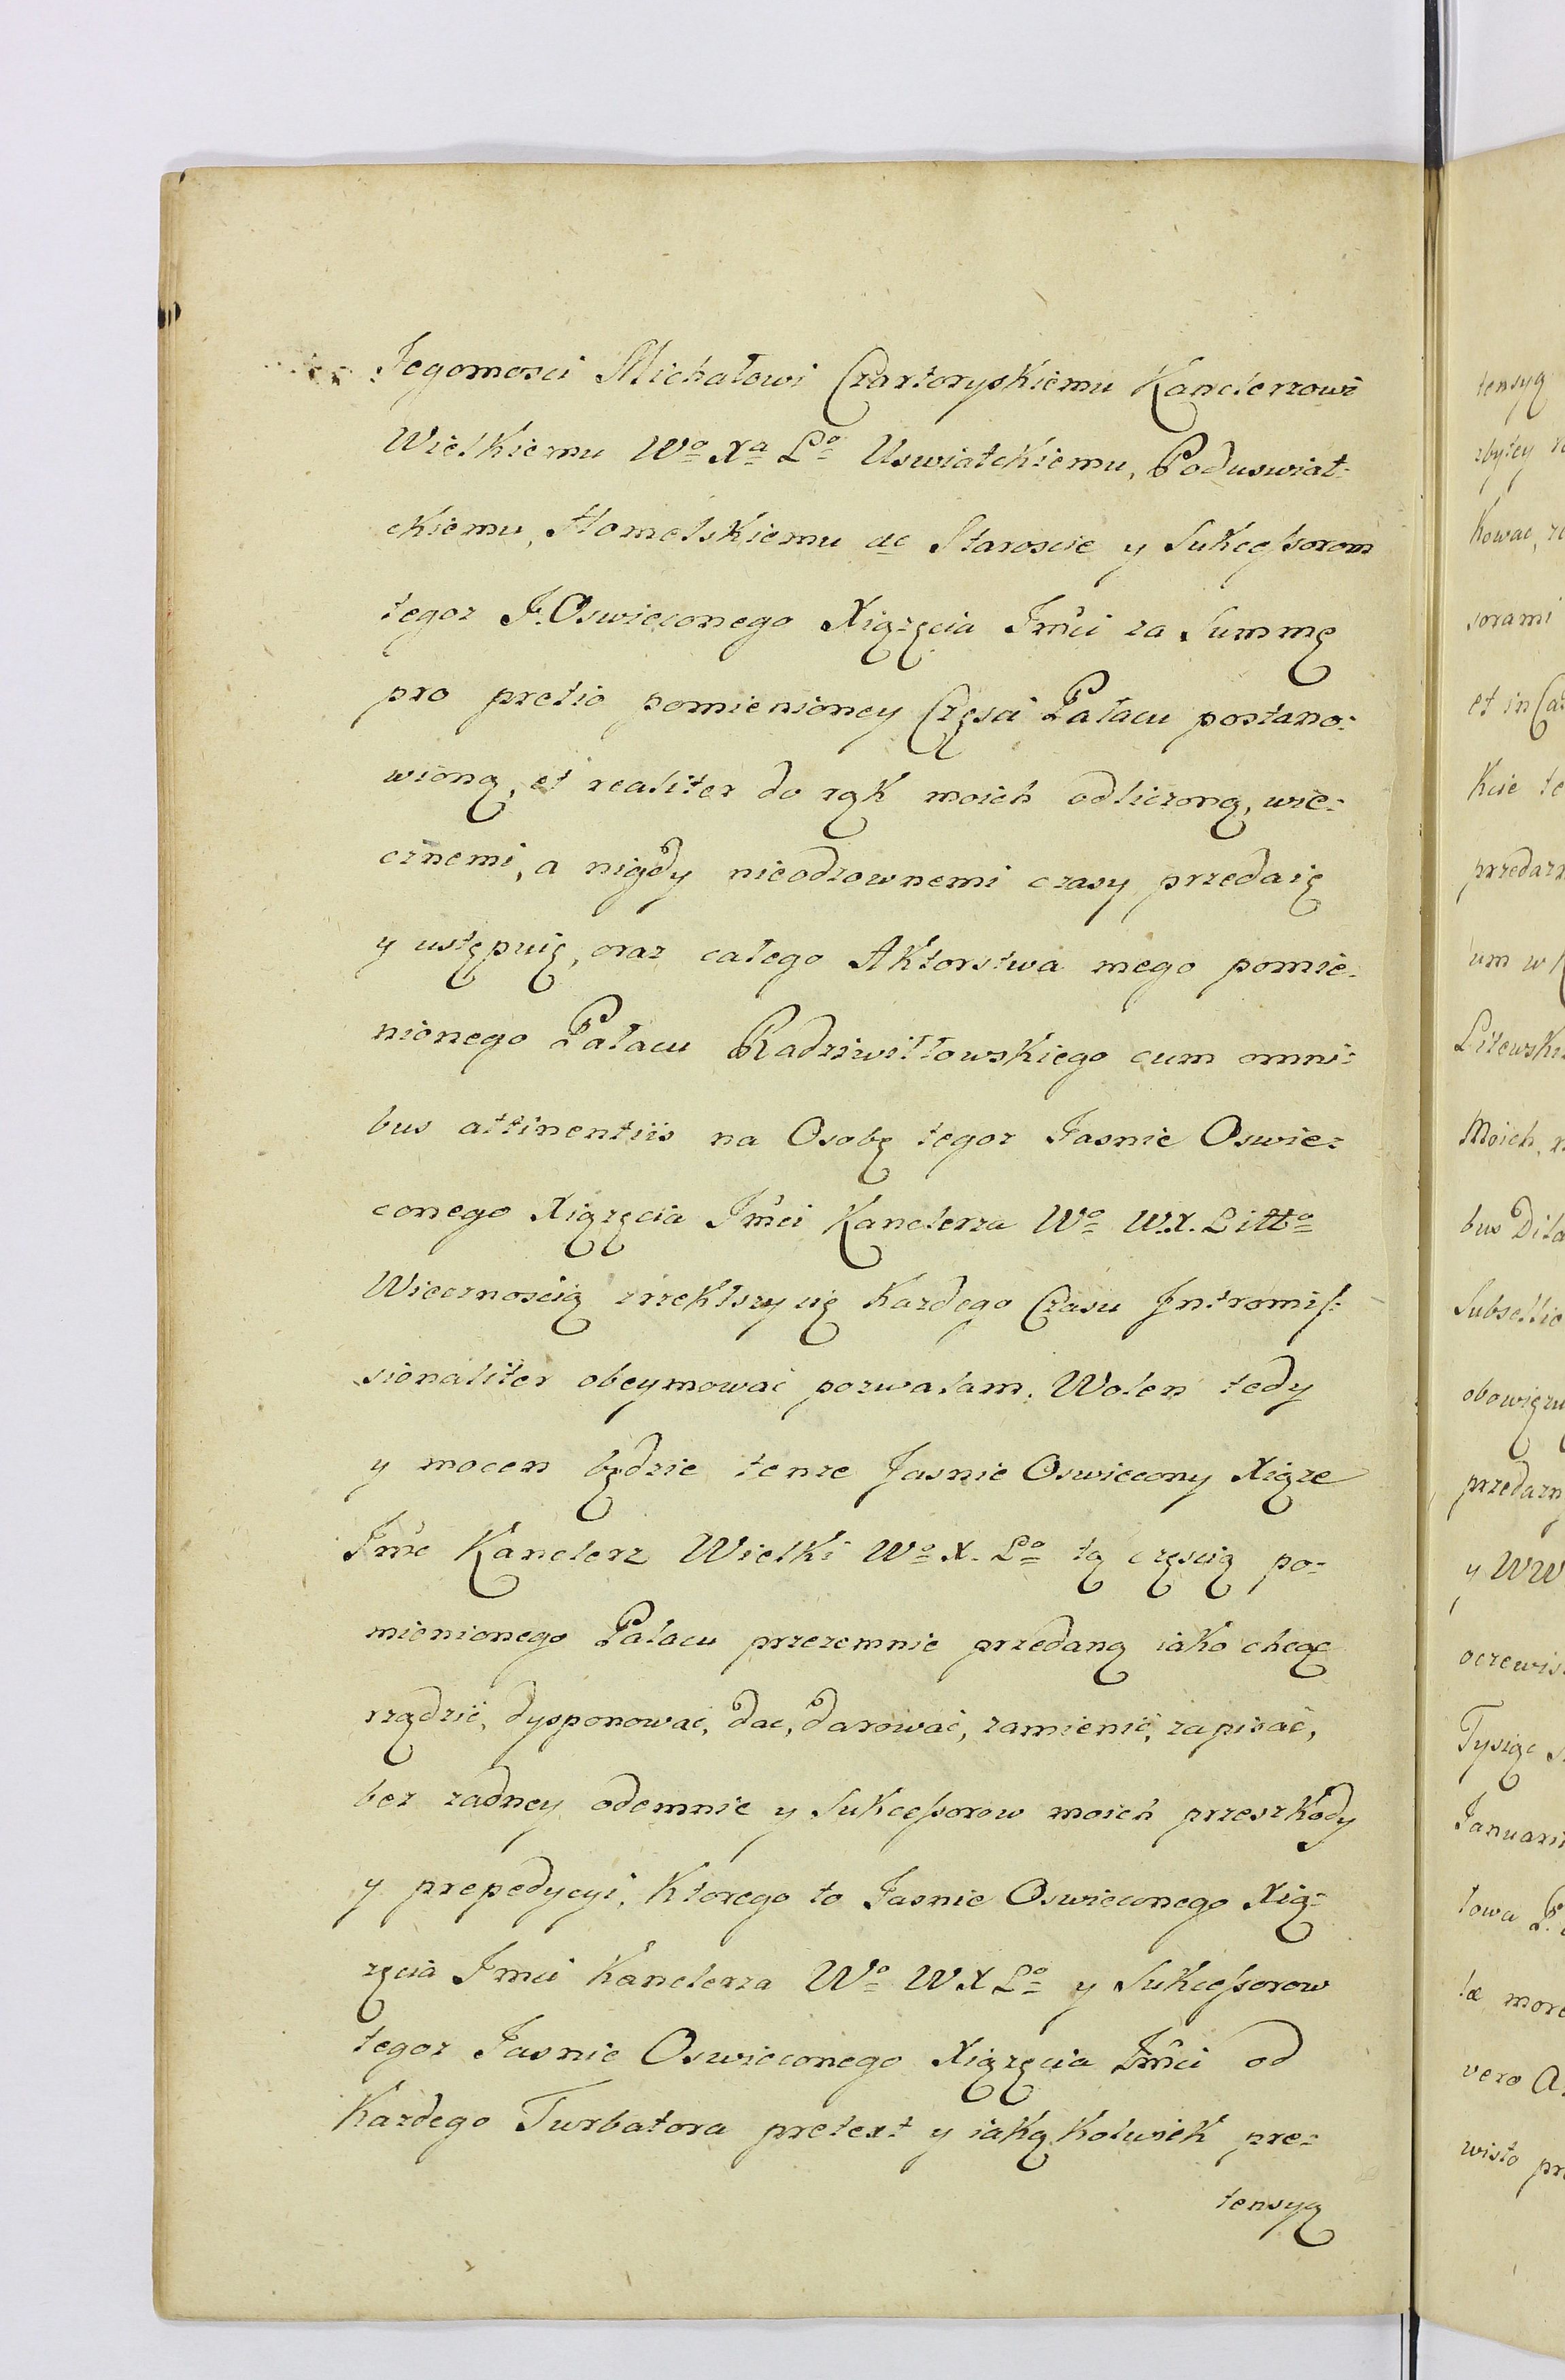 Jegomosci Michałowi Czartoryskiemu Kanclerzowi
Wielkiemu Wo Xa Lo Uswiatckiemu, Poduswiat-
ckiemu, Homelskiemu &c Staroscie y Sukcessorom
tegoz J. Oswieconego Xiązęcia Jmći za Summę
pro pretio pomienioney Częsci Pałacu postano-
wioną, et realiter do rąk moich odliczoną, wie-
cznemi, a nigdy nieodzownemi czasy przedaię
y ustępuię, oraz całego Aktorstwa mego pomie-
nionego Pałacu Radziwiłłowskiego cum omni-
bus attinentiis na Osobę tegoz Jasnie Oswie-
conego Xiązęcia Jmći Kanclerza Wo W.X. Litto
Wiecznoscią zrzekłszy się Kazdego Czasu Intromis-
sionaliter obeymowac pozwalam. Wolen tedy
y mocen będzie tenze Jasnie Oswiecony Xiąze
Jmć Kanclerz Wielki Wo X. Lo tą częscią po-
mienionego Pałacu przezemnie przedaną iako chcąc
rządzić, dysponowac, dac, darować, zamienić, zapisać,
bez zadney odemnie y Sukcessorow moich przeszkody
y prepedycyi. Ktorego to Jasnie Oswieconego Xią-
zęcia Jmći Kanclerza Wo W X Lo y Sukcessorow
tegoz Jasnie Oswieconego Xiązęcia Jmći od
Kazdego Turbatora pretext y iaką kolwiek pre-
tensyą
tensyą
Kowac,
sorami
et in
Litewski
Moich,
Tysiąc
vero